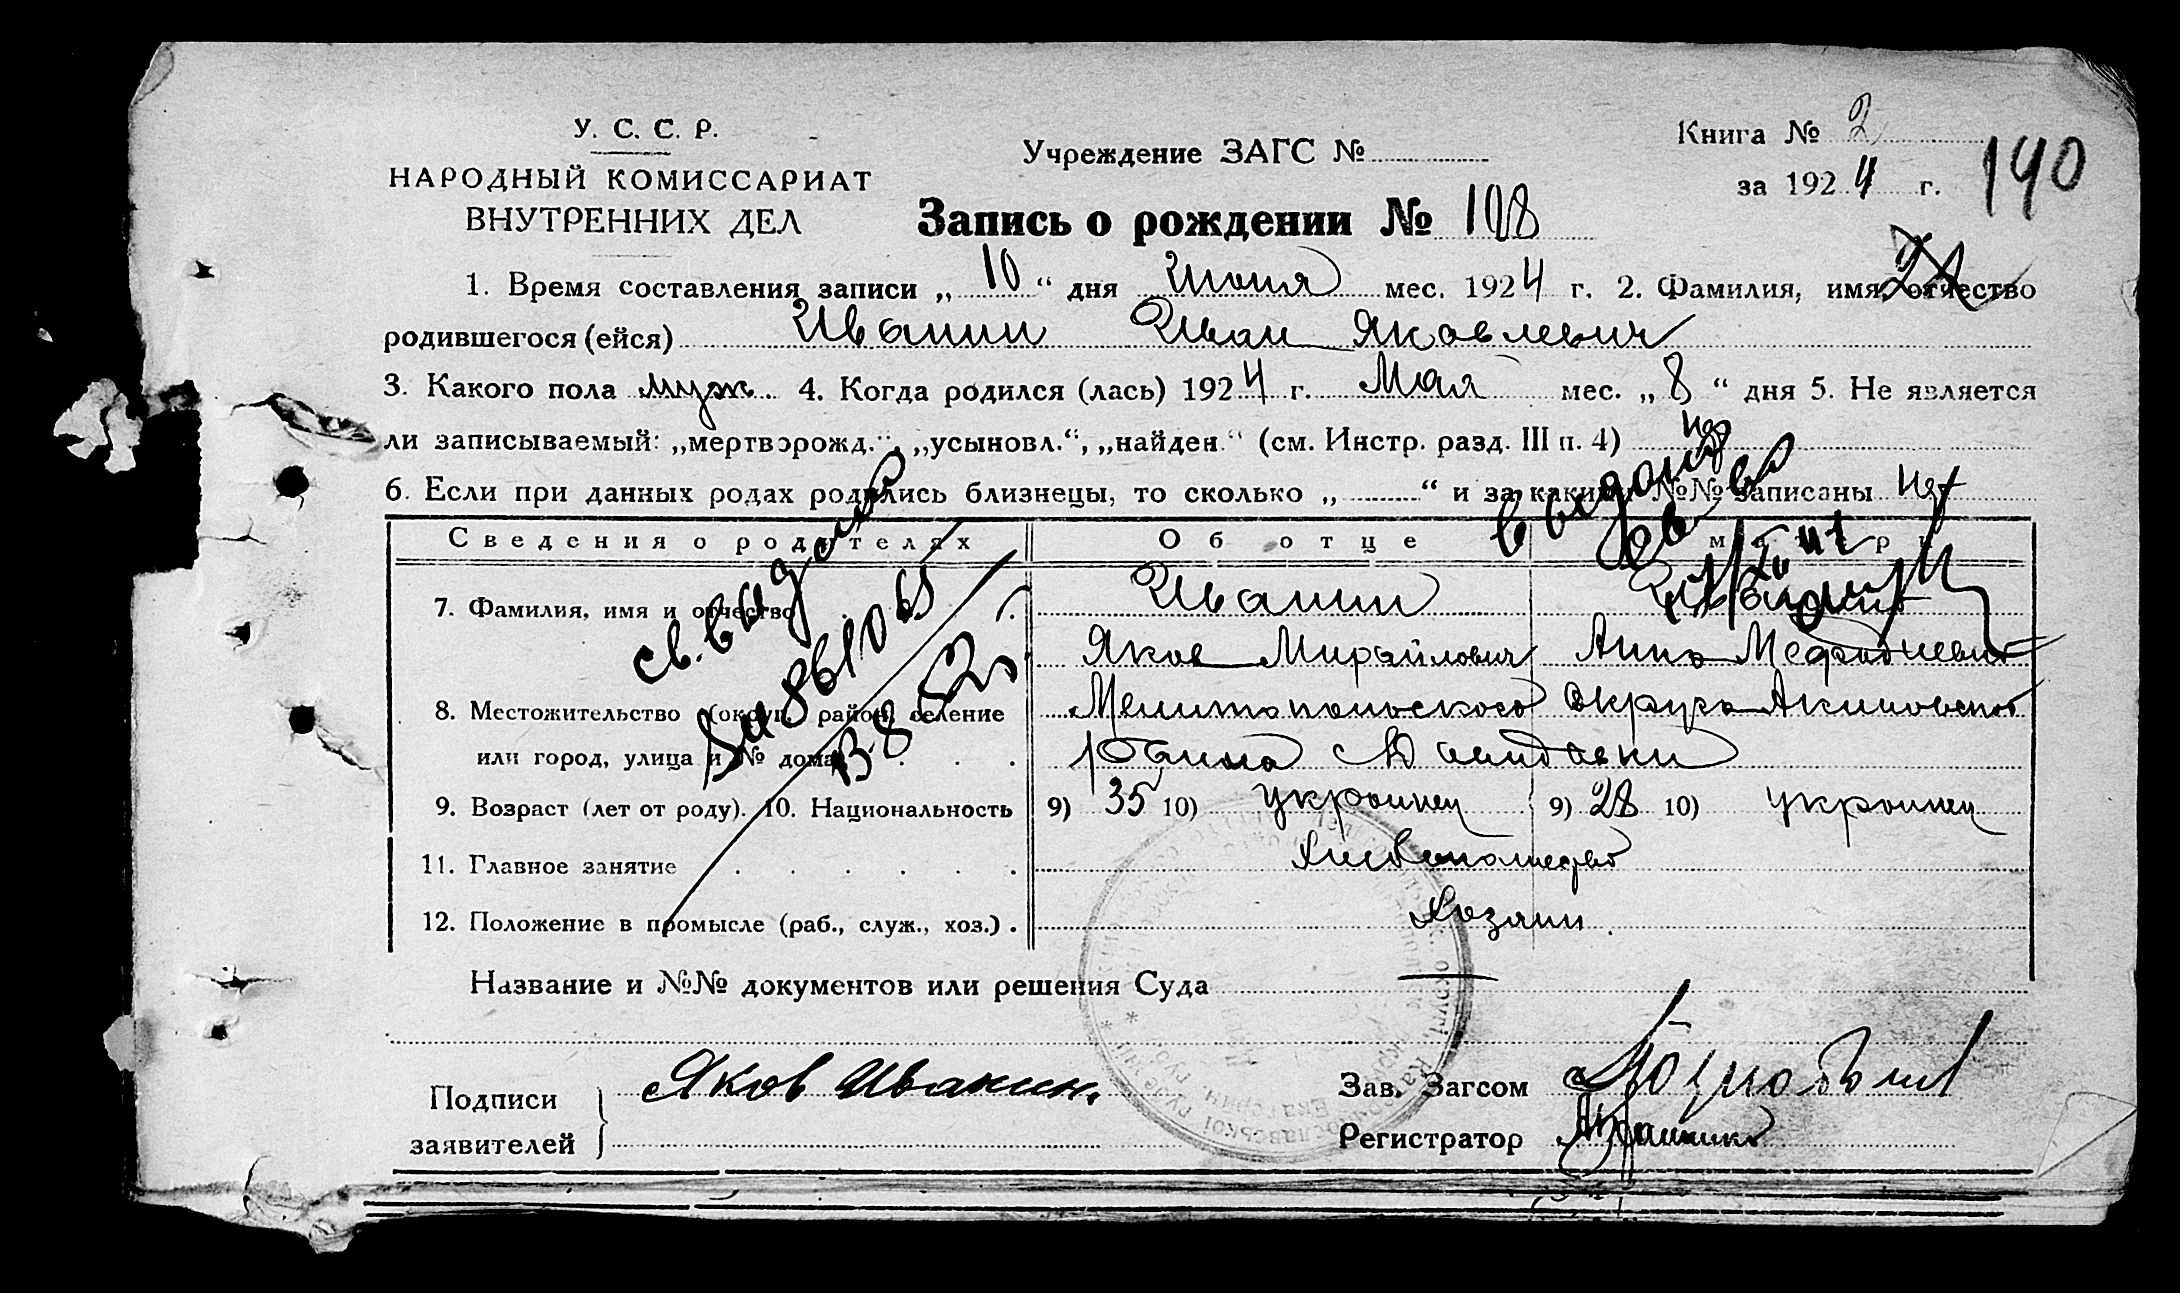 У. С. С. Р.
НАРОДНЫЙ КОМИССАРИАТ
ВНУТРЕННИХ ДЕЛ
Учреждение ЗАГС №
Книга № 2
за 1924 г.
190
Запись о рождении № 108
1. Время составления записи „ 10 “ дня Июня мес. 1924 г. 2. Фамилия, имя, отчество
родившегося (ейся) Иванин Иван Яковлевич
3. Какого пола муж. 4. Когда родился (лась) 1924 г. Мая мес. „ 8 “ дня 5. Не является
ли записываемый: „мертворожд.“, „усыновл.“, „найден.“ (см. Инстр. разд. III п. 4) нет
6. Если при данных родах родились близнецы, то сколько „ “ и за какими №№ записаны нет
Сведения о родителях Об отце матери
7. Фамилия, имя и отчество Иванин
Яков Михайлович Анна Мефодиевна
8. Местожительство (округ, район, селение Мелитопольского округа Акимовского
или город, улица и № дома района
9. Возраст (лет от роду). 10. Национальность 9) 35 10) украинец 9) 28 10) украинец
11. Главное занятие Хлебопашество
12. Положение в промысле (раб., служ., хоз.) Хозяин
св. выдано
выдано
Название и №№ документов или решения Суда —
Подписи
заявителей
Яков Иванин.
Зав. Загсом
Регистратор